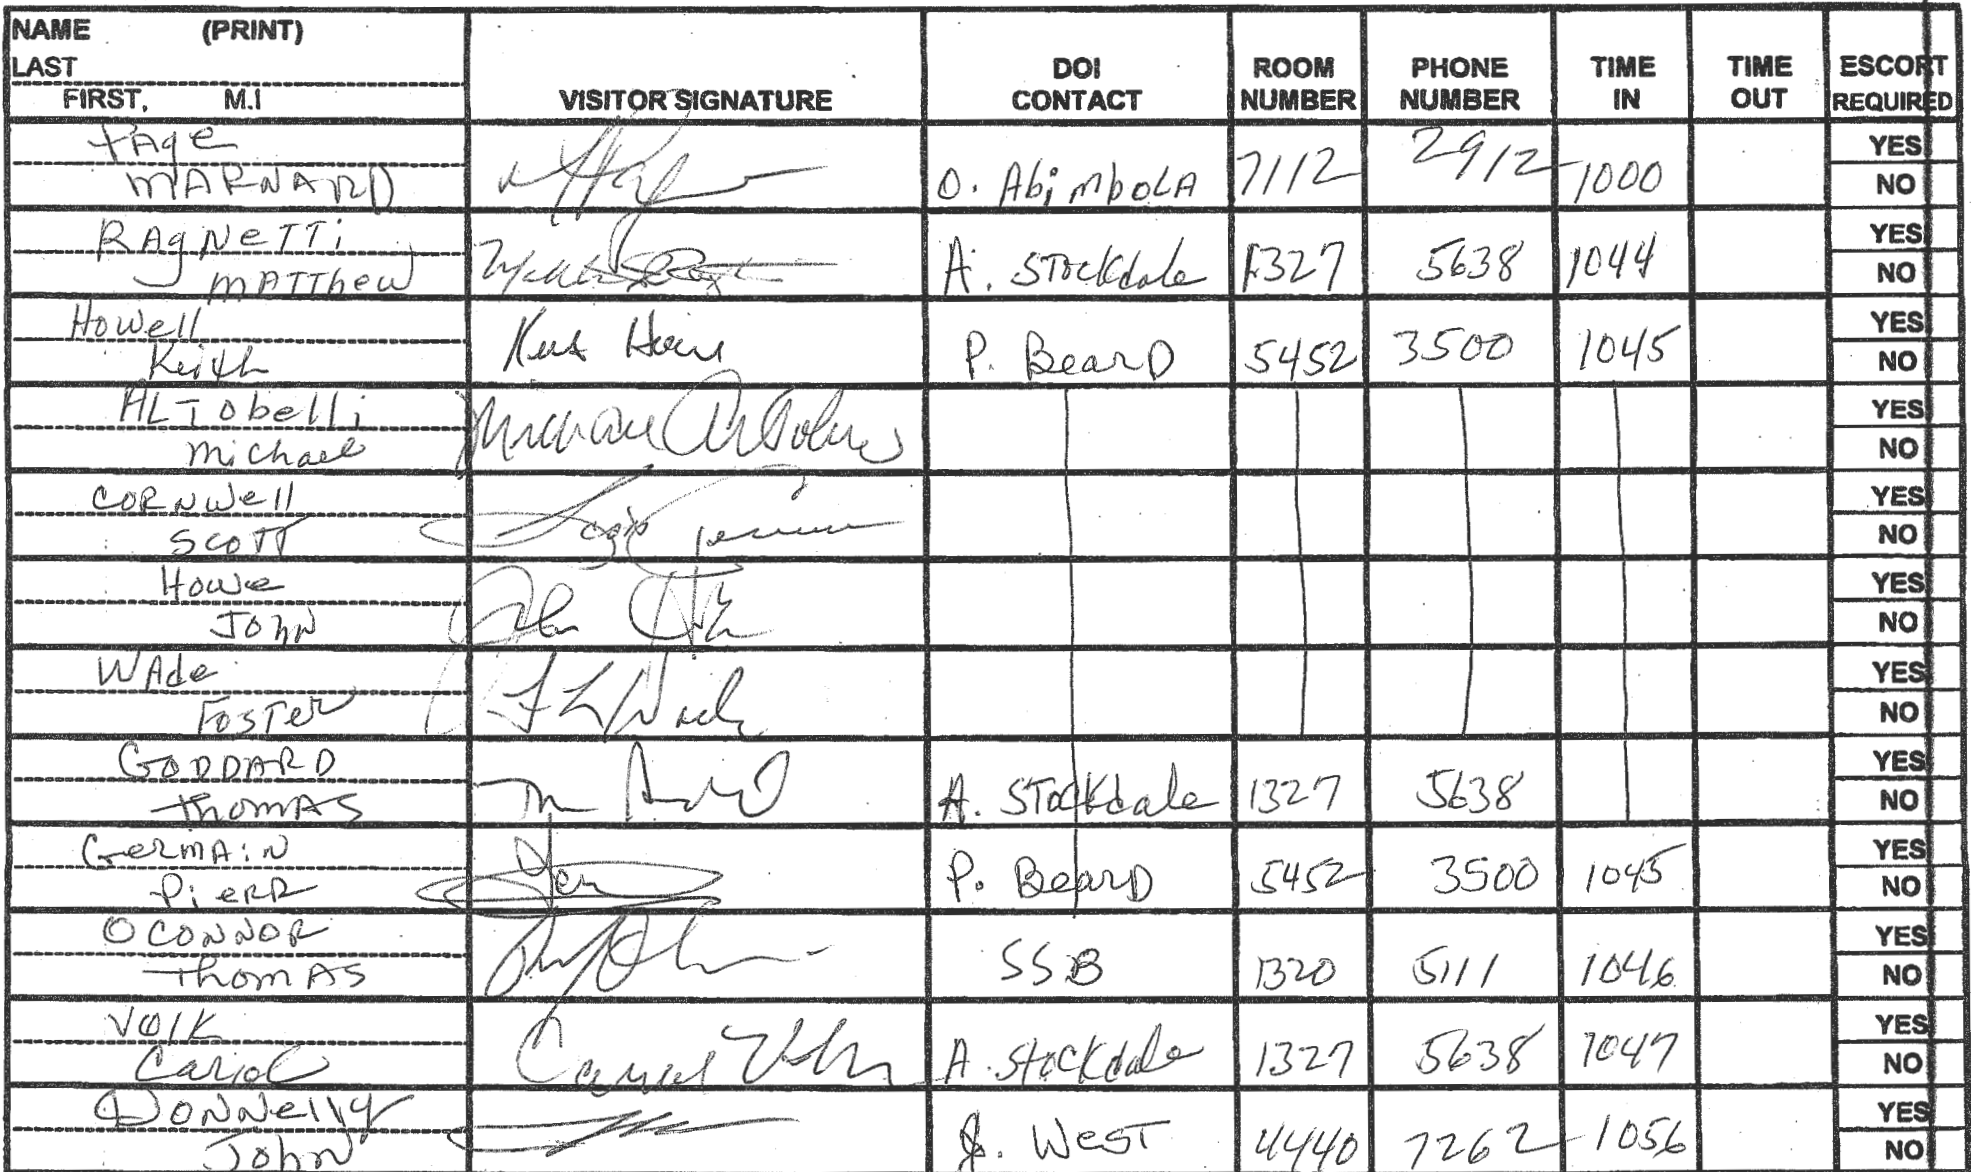 NAME (PRINT)
LAST
FIRST, M.I
VISITOR SIGNATURE
DOI CONTACT
ROOM NUMBER
PHONE NUMBER
TIME IN
TIME OUT
ESCORT REQUIRED
MARNARD O. Abimbola 7112 2912 1000 YES NO
RAgNeTTi
MATThew A. STockdale 1327 5638 1044 YES NO
Howell
Keith P. BearD 5452 3500 1045 YES NO
ALTobelli
Michael YES NO
CORNWell
SCOTT YES NO
Howe
JOhN YES NO
WAde
FosTer YES NO
GODDARD
ThomAS A. STockdale 1327 5638 YES NO
GermAiN
PierR P. BearD 5452 3500 1045 YES NO
OCONNOR
ThomAS SSB 1320 5111 1046 YES NO
VOlK
Carol A. Stockdale 1327 5638 1047 YES NO
DONNelly
JohN J. WesT 4440 7262 1056 YES NO